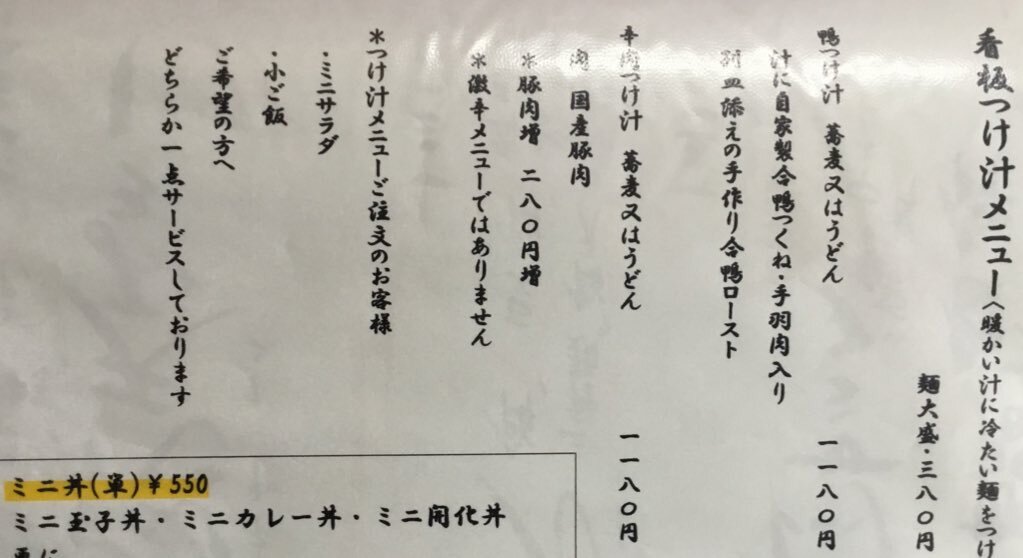 看板つけ汁メニュー〈暖かい汁に冷たい麺をつけ
麺大盛・三八〇円
鴨つけ汁　蕎麦又はうどん　一一八〇円
汁に自家製合鴨つくね・手羽肉入り
別皿添えの手作り合鴨ロースト
辛肉つけ汁　蕎麦又はうどん　一一八〇円
肉　国産豚肉
※豚肉増　二八〇円増
※激辛メニューではありません
※つけ汁メニューご注文のお客様
・ミニサラダ
・小ご飯
ご希望の方へ
どちらか一点サービスしております
ミニ丼(単)¥550
ミニ玉子丼・ミニカレー丼・ミニ開化丼